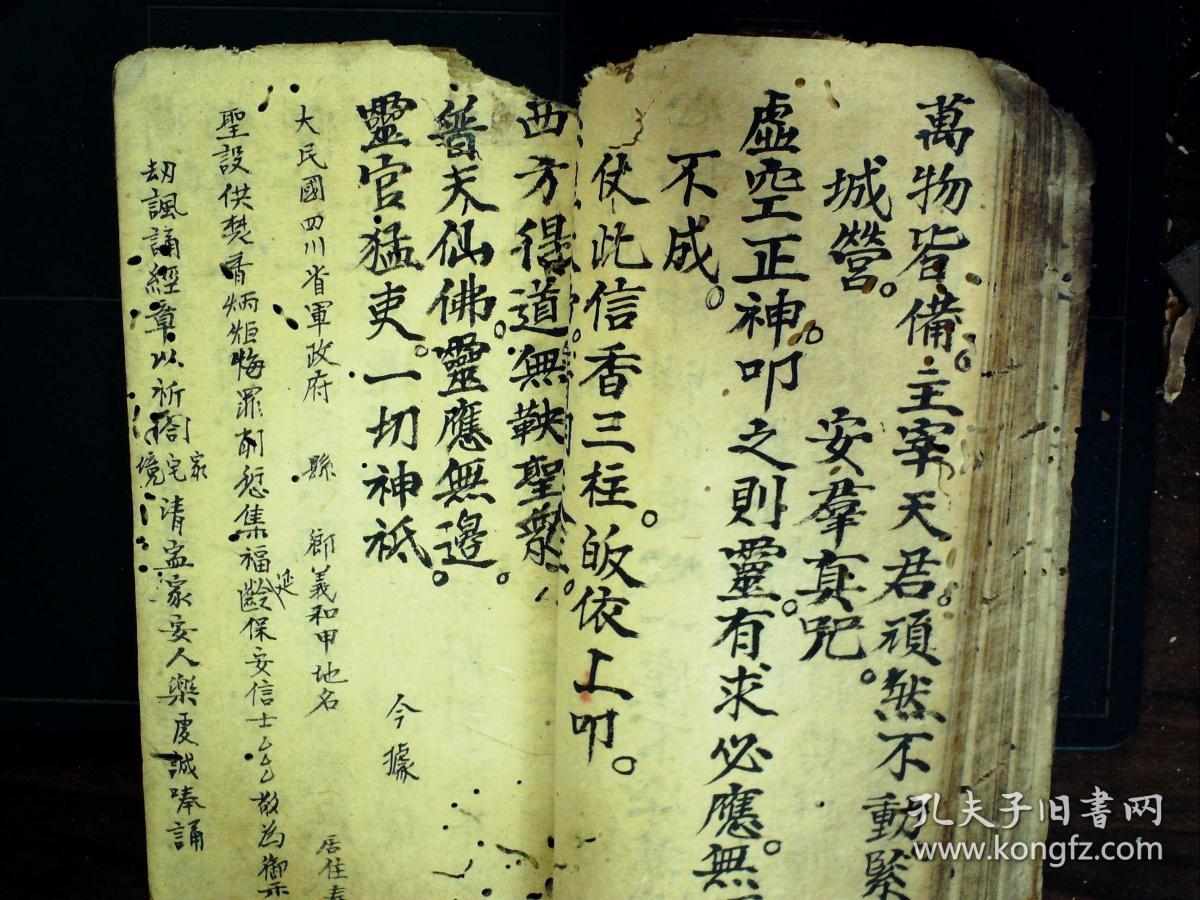 萬物皆備。主宰天君。頑然不動緊
城營。安羣真咒。
虛空正神。叩之則靈。有求必應。無
不成。
仗此信香三柱。皈依上叩。
西方得道無鞅聖衆。
普天仙佛。靈應無邊。
靈官猛吏。一切神祇。
今據
大民國四川省軍政府 縣 鄉義和甲地名 居住奉
聖設供焚香炳炬悔罪削愆集福延齡保安信士 敬為禦
劫諷誦經章以祈閤家宅境清孟家安人樂虔誠唪誦
孔夫子旧书网
www.kongfz.com